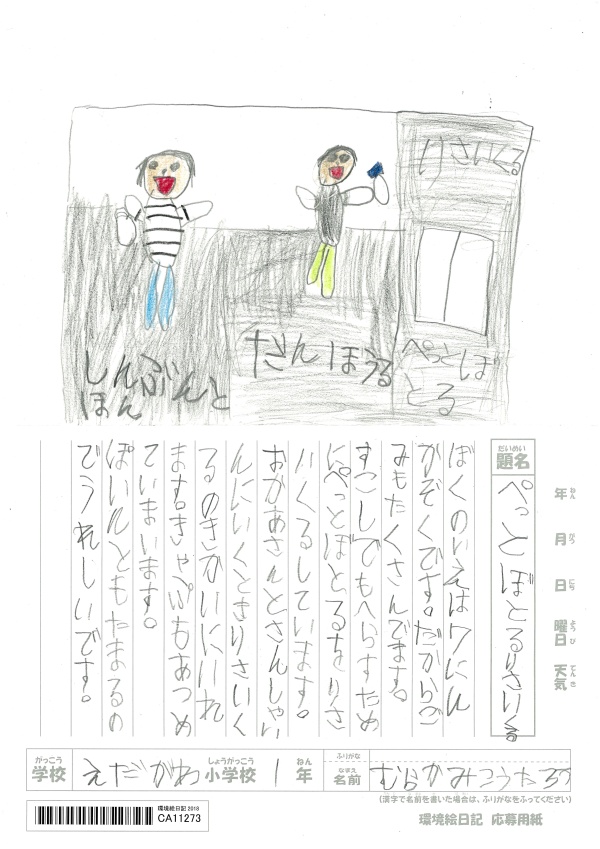 りさいくる
しんぶんと
ほん
だんほうる
ぺっとぼ
とる
年 ねん
月 がつ
日 にち
曜日 ようび
天気 てんき
だいめい
題名
ぺっとぼとるりさいくる
ぼくのいえは7にん
かぞくです。だからご
みもたくさんでます。
すこしでもへらすため
にぺっとぼとるをりさ
いくるしています。
おかあさんとさんしゃい
んにいくときりさいく
るのきかいにいれ
ます。きゃっぷもあつめ
ていまいます。
ぽいんともたまるの
でうれしいです。
がっこう
学校
えだがわ
しょうがっこう
小学校
1
ねん
年
ふりがな
なまえ
名前
むらかみこうたろう
(漢字で名前を書いた場合は、ふりがなをふってください)
環境絵日記2018
CA11273
環境絵日記 応募用紙